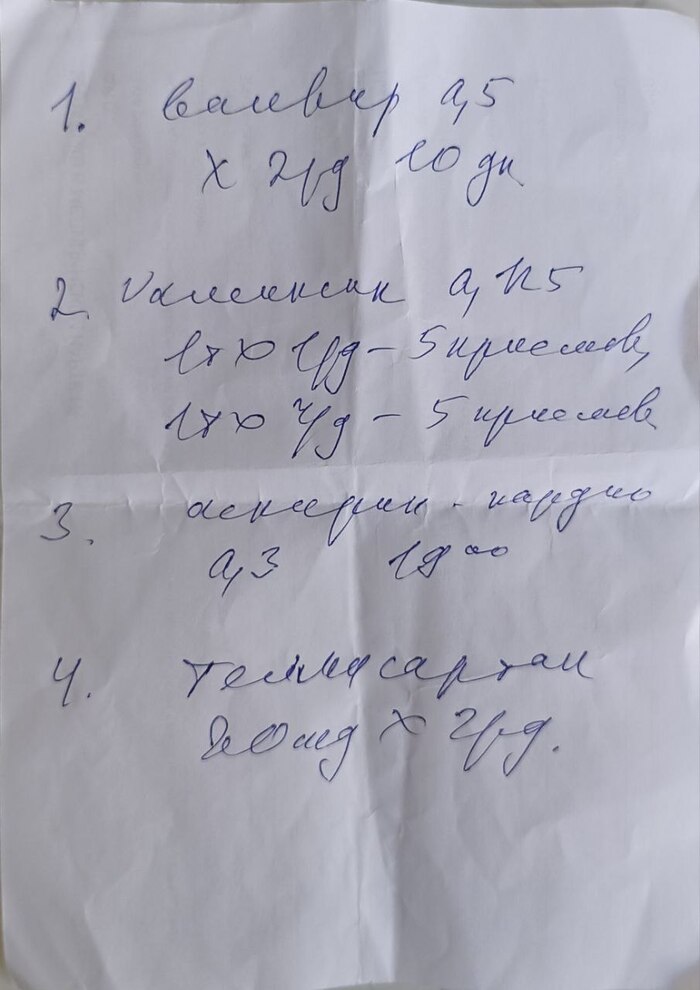 1. Валвир 0,5
х 2р/д 10 дн
2. 0,125
1т х р/д - 5 приемов,
1т х р/д - 5 приемов
3. аспирин - кардио
0,3 19 00
4. Телмисартан
мд х 2р/д.